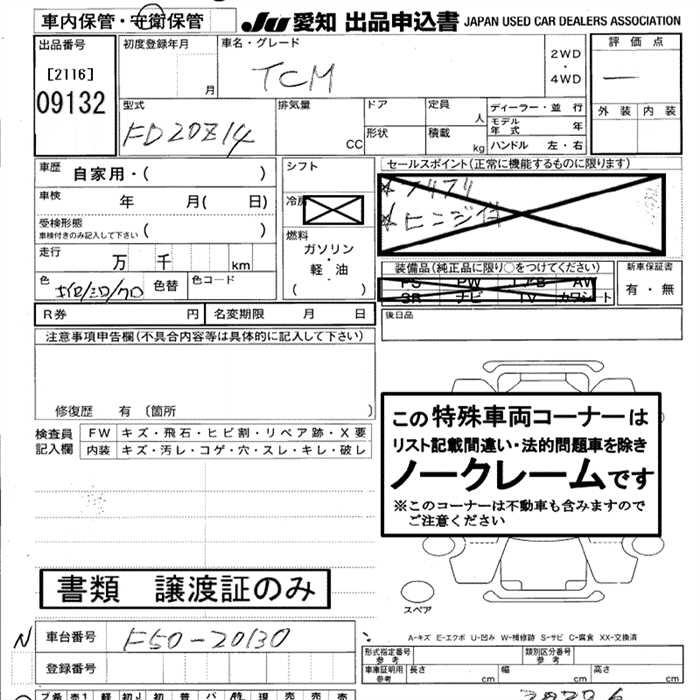 車内保管・守衛保管
JU 愛知 出品申込書 JAPAN USED CAR DEALERS ASSOCIATION
出品番号
[2116]
09132
初度登録年月
月
車名・グレード
TCM
2WD
・
4WD
評価点
外装 内装
型式
FD20Z14
排気量
CC
ドア
形状
定員
人
積載
kg
ディーラー・並行
モデル年式 年
ハンドル 左・右
車歴 自家用・( )
車検 年 月( 日)
受検形態
車検付きのみ記入して下さい ( )
走行 万 千 km
色 色替 色コード
シフト
冷房
燃料
ガソリン
・
軽・油
( )
セールスポイント(正常に機能するものに限ります)
装備品(純正品に限り○をつけてください)
PS PW エアB AW
SR ナビ TV カワシート
新車保証書
有・無
R券 円 名変期限 月 日
後日品
注意事項申告欄(不具合内容等は具体的に記入して下さい)
修復歴 有 〔箇所 〕
検査員記入欄
FW キズ・飛石・ヒビ割・リペア跡・X要
内装 キズ・汚レ・コゲ・穴・スレ・キレ・破レ
この特殊車両コーナーは
リスト記載間違い・法的問題車を除き
ノークレームです
※このコーナーは不動車も含みますので
ご注意ください
書類 譲渡証のみ
スペア
A-キズ E-エクボ U-凹み W-補修跡 S-サビ C-腐食 XX-交換済
N 車台番号 F50-20130
登録番号
形式指定番号 参考
類別区分番号 参考
車庫証明用 参考 長さ cm 幅 cm 高さ cm